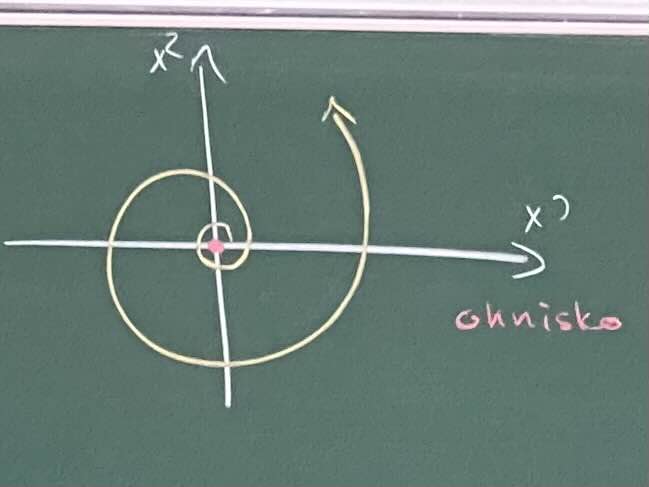 x²
x¹
ohnisko